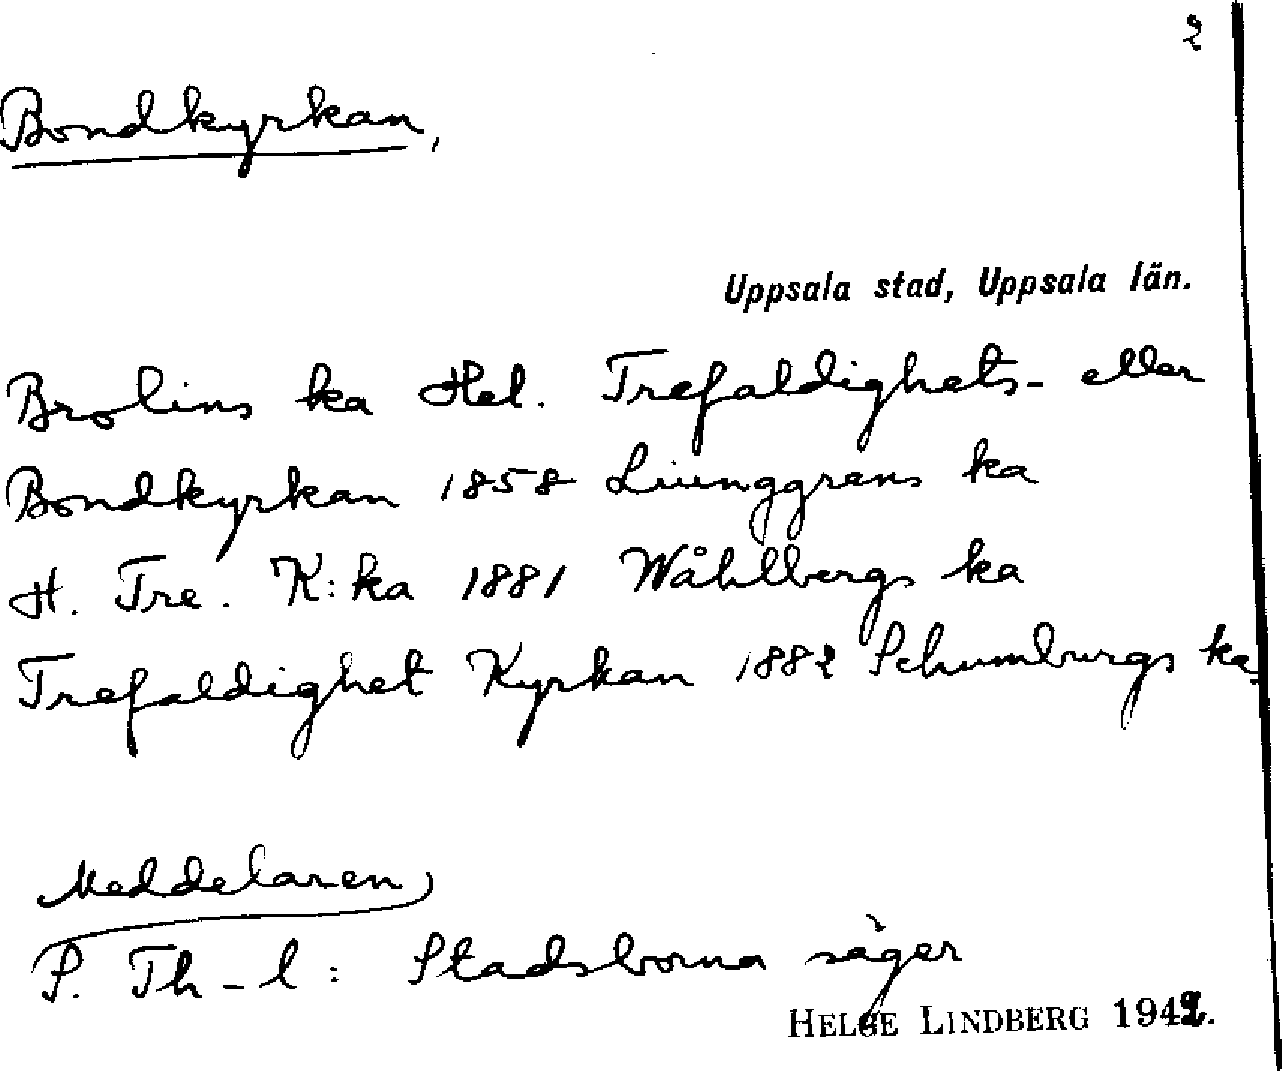 2
Bondkyrkan,
Uppsala stad, Uppsala län.
Brolins ka Hel. Trefaldighets- eller
Bondkyrkan 1858 Liunggrens ka
H. Tre. K:ka 1881 Wåhlbergs ka
Trefaldighet Kyrkan 1882 Schumburgs ka
Meddelaren
P. Th-l: Stadsborna säger
HELGE LINDBERG 1942.